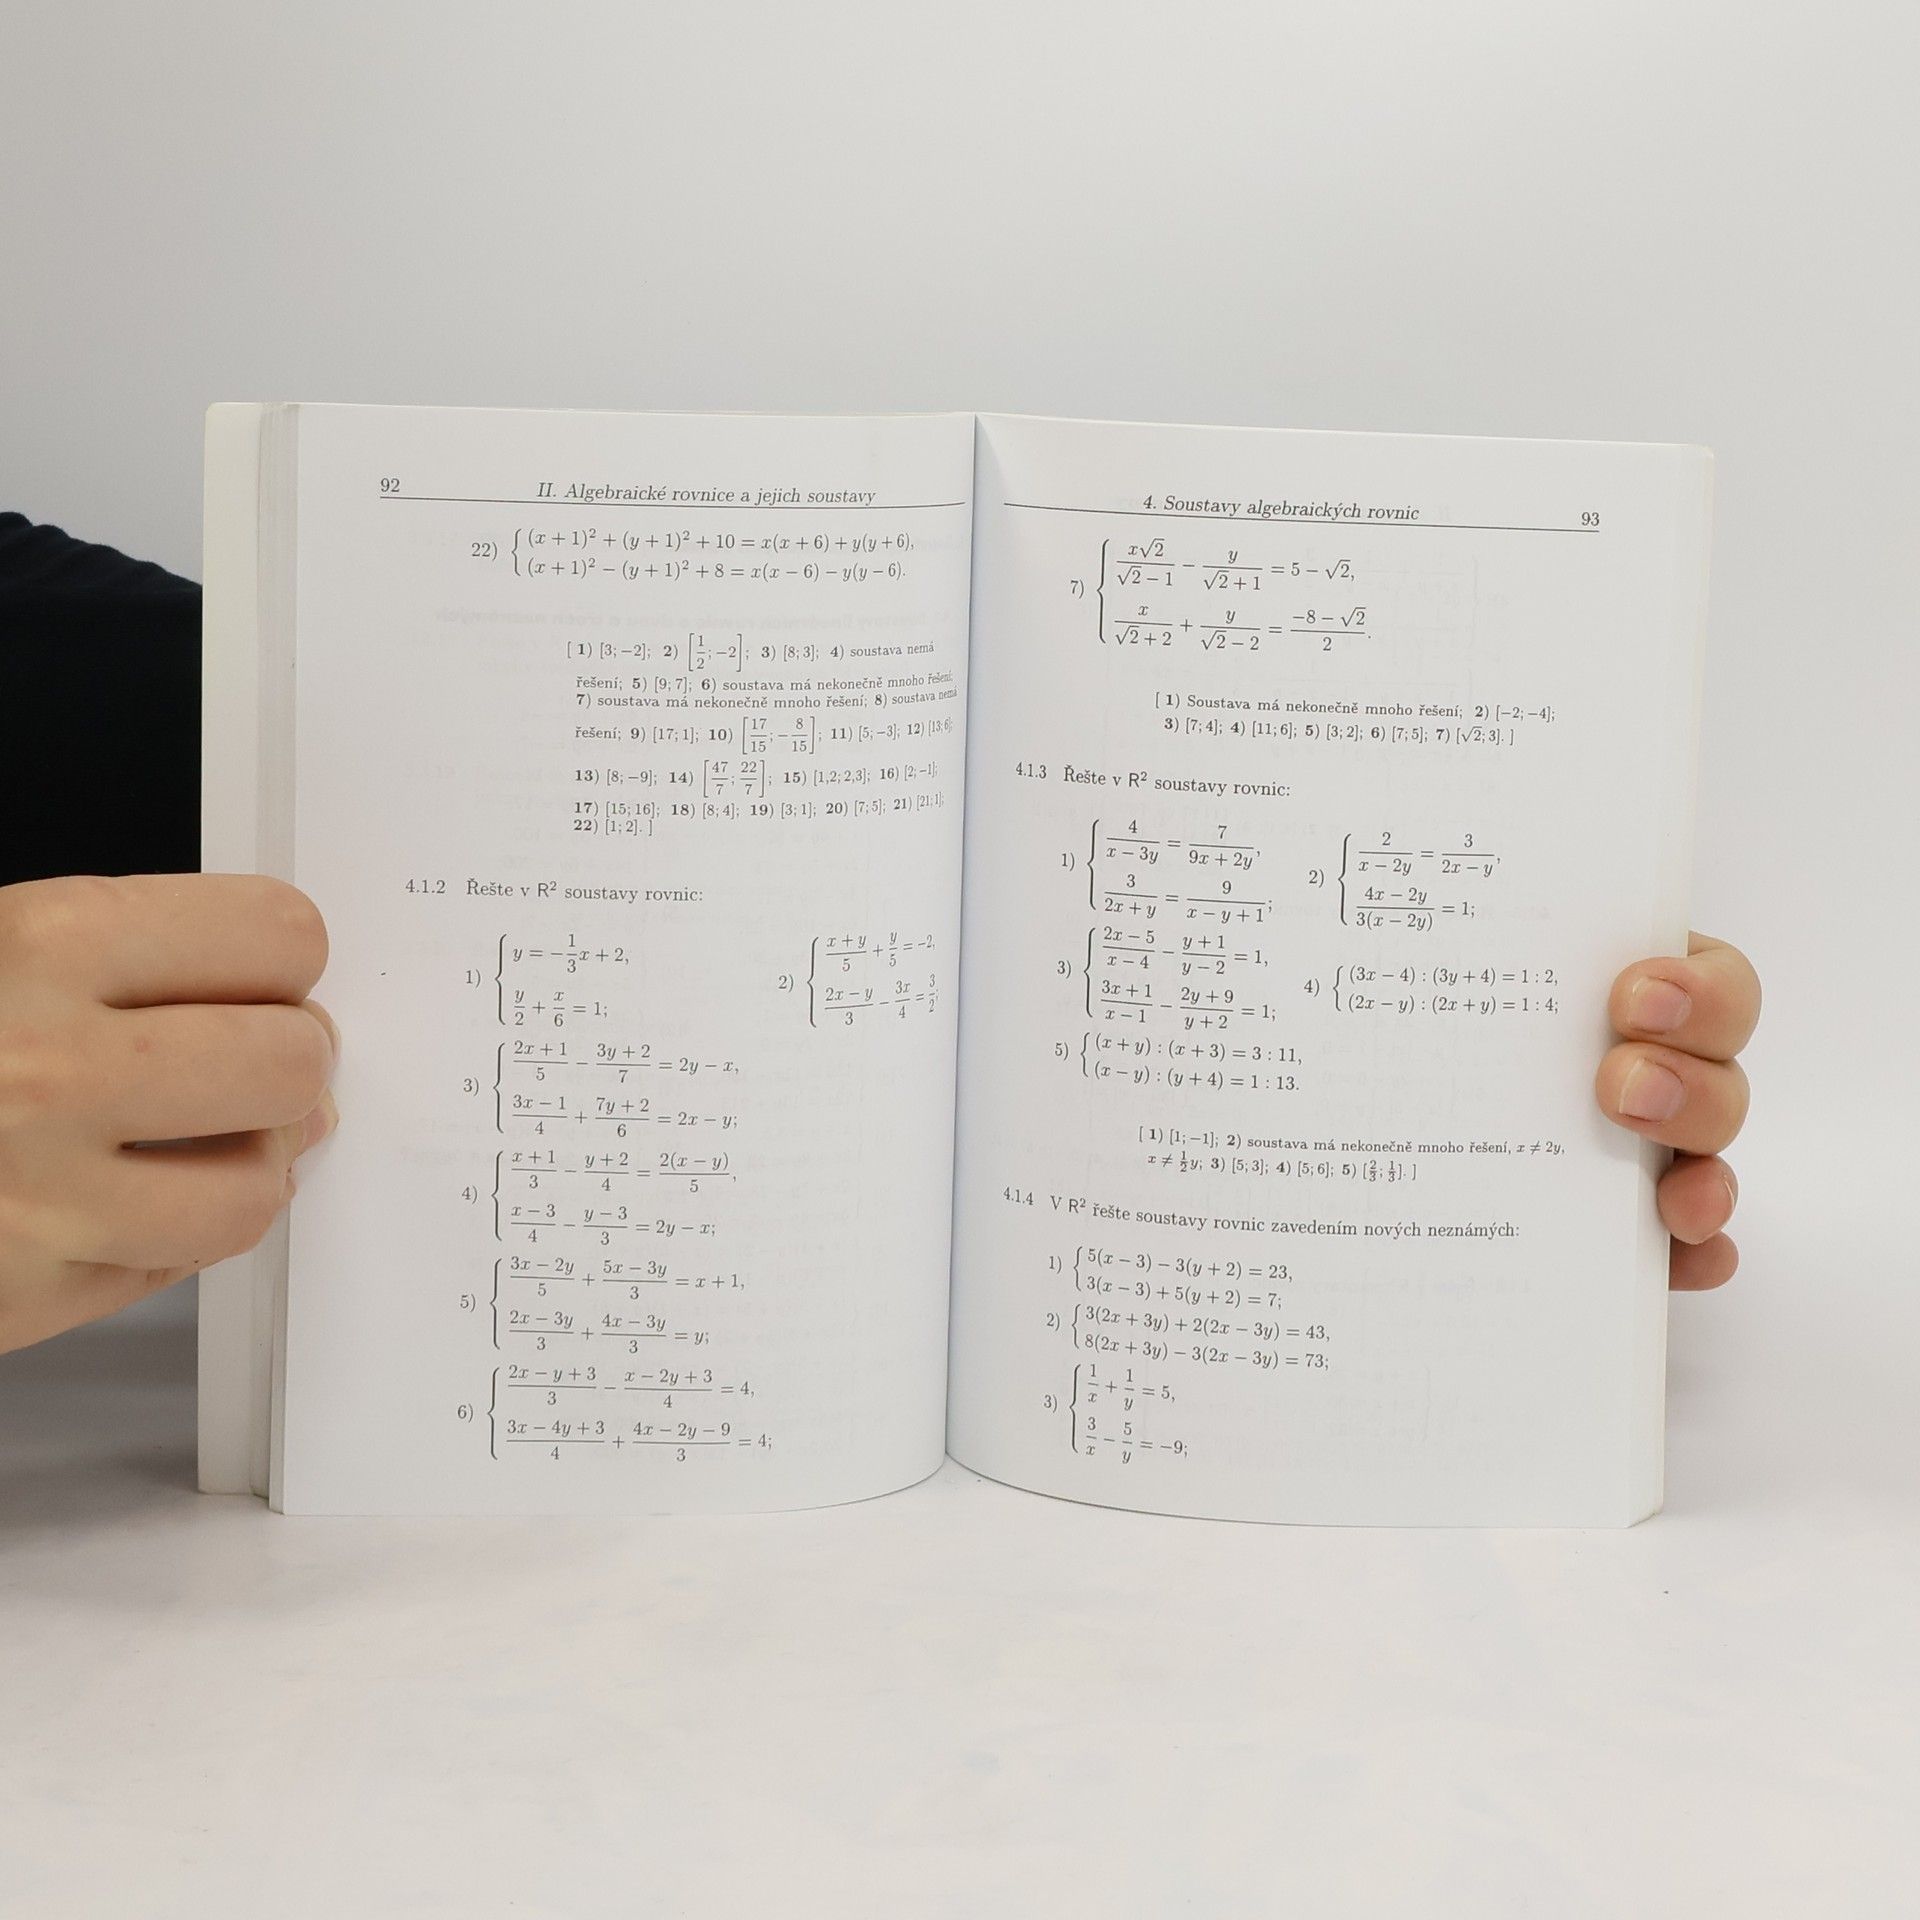 92 II. Algebraické rovnice a jejich soustavy
22) { (x + 1)² + (y + 1)² + 10 = x(x + 6) + y(y + 6),
(x + 1)² − (y + 1)² + 8 = x(x − 6) − y(y − 6).
[ 1) [3; −2]; 2) [1/2; −2]; 3) [8; 3]; 4) soustava nemá
řešení; 5) [9; 7]; 6) soustava má nekonečně mnoho řešení;
7) soustava má nekonečně mnoho řešení; 8) soustava nemá
řešení; 9) [17; 1]; 10) [17/15; −8/15]; 11) [5; −3]; 12) [13; 6];
13) [8; −9]; 14) [47/7; 22/7]; 15) [1,2; 2,3]; 16) [2; −1];
17) [15; 16]; 18) [8; 4]; 19) [3; 1]; 20) [7; 5]; 21) [21; 1];
22) [1; 2]. ]
4.1.2 Řešte v R² soustavy rovnic:
1) { y = −1/3 x + 2,
y/2 + x/6 = 1;
2) { (x + y)/5 + y/5 = −2,
(2x − y)/3 − 3x/4 = 3/2;
3) { (2x + 1)/5 − (3y + 2)/7 = 2y − x,
(3x − 1)/4 + (7y + 2)/6 = 2x − y;
4) { (x + 1)/3 − (y + 2)/4 = 2(x − y)/5,
(x − 3)/4 − (y − 3)/3 = 2y − x;
5) { (3x − 2y)/5 + (5x − 3y)/3 = x + 1,
(2x − 3y)/3 + (4x − 3y)/3 = y;
6) { (2x − y + 3)/3 − (x − 2y + 3)/4 = 4,
(3x − 4y + 3)/4 + (4x − 2y − 9)/3 = 4;
4. Soustavy algebraických rovnic 93
7) { x√2/(√2 − 1) − y/(√2 + 1) = 5 − √2,
x/(√2 + 2) + y/(√2 − 2) = (−8 − √2)/2.
[ 1) Soustava má nekonečně mnoho řešení; 2) [−2; −4];
3) [7; 4]; 4) [11; 6]; 5) [3; 2]; 6) [7; 5]; 7) [√2; 3]. ]
4.1.3 Řešte v R² soustavy rovnic:
1) { 4/(x − 3y) = 7/(9x + 2y),
3/(2x + y) = 9/(x − y + 1);
2) { 2/(x − 2y) = 3/(2x − y),
(4x − 2y)/(3(x − 2y)) = 1;
3) { (2x − 5)/(x − 4) − (y + 1)/(y − 2) = 1,
(3x + 1)/(x − 1) − (2y + 9)/(y + 2) = 1;
4) { (3x − 4) : (3y + 4) = 1 : 2,
(2x − y) : (2x + y) = 1 : 4;
5) { (x + y) : (x + 3) = 3 : 11,
(x − y) : (y + 4) = 1 : 13.
[ 1) [1; −1]; 2) soustava má nekonečně mnoho řešení, x ≠ 2y,
x ≠ 1/2 y; 3) [5; 3]; 4) [5; 6]; 5) [2/3; 1/3]. ]
4.1.4 V R² řešte soustavy rovnic zavedením nových neznámých:
1) { 5(x − 3) − 3(y + 2) = 23,
3(x − 3) + 5(y + 2) = 7;
2) { 3(2x + 3y) + 2(2x − 3y) = 43,
8(2x + 3y) − 3(2x − 3y) = 73;
3) { 1/x + 1/y = 5,
3/x − 5/y = −9;